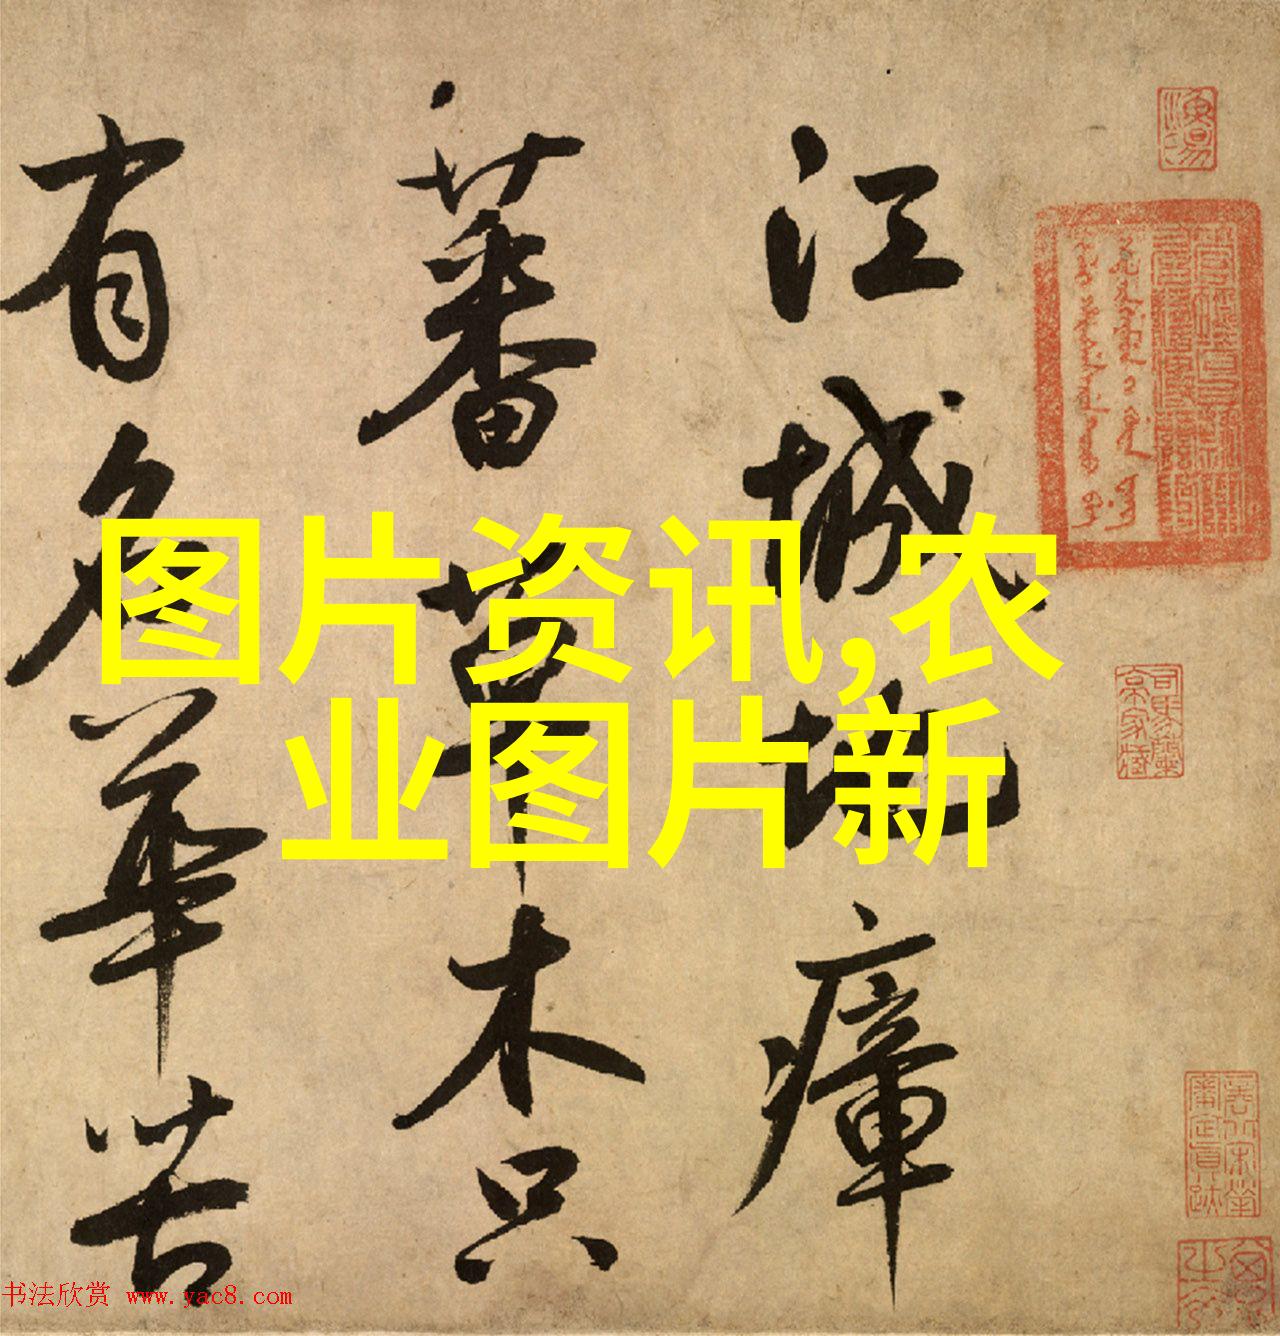 江城地瘴
蕃草木只
有名華苦
图片资讯,农
业图片新
书法欣赏 www.yac8.com